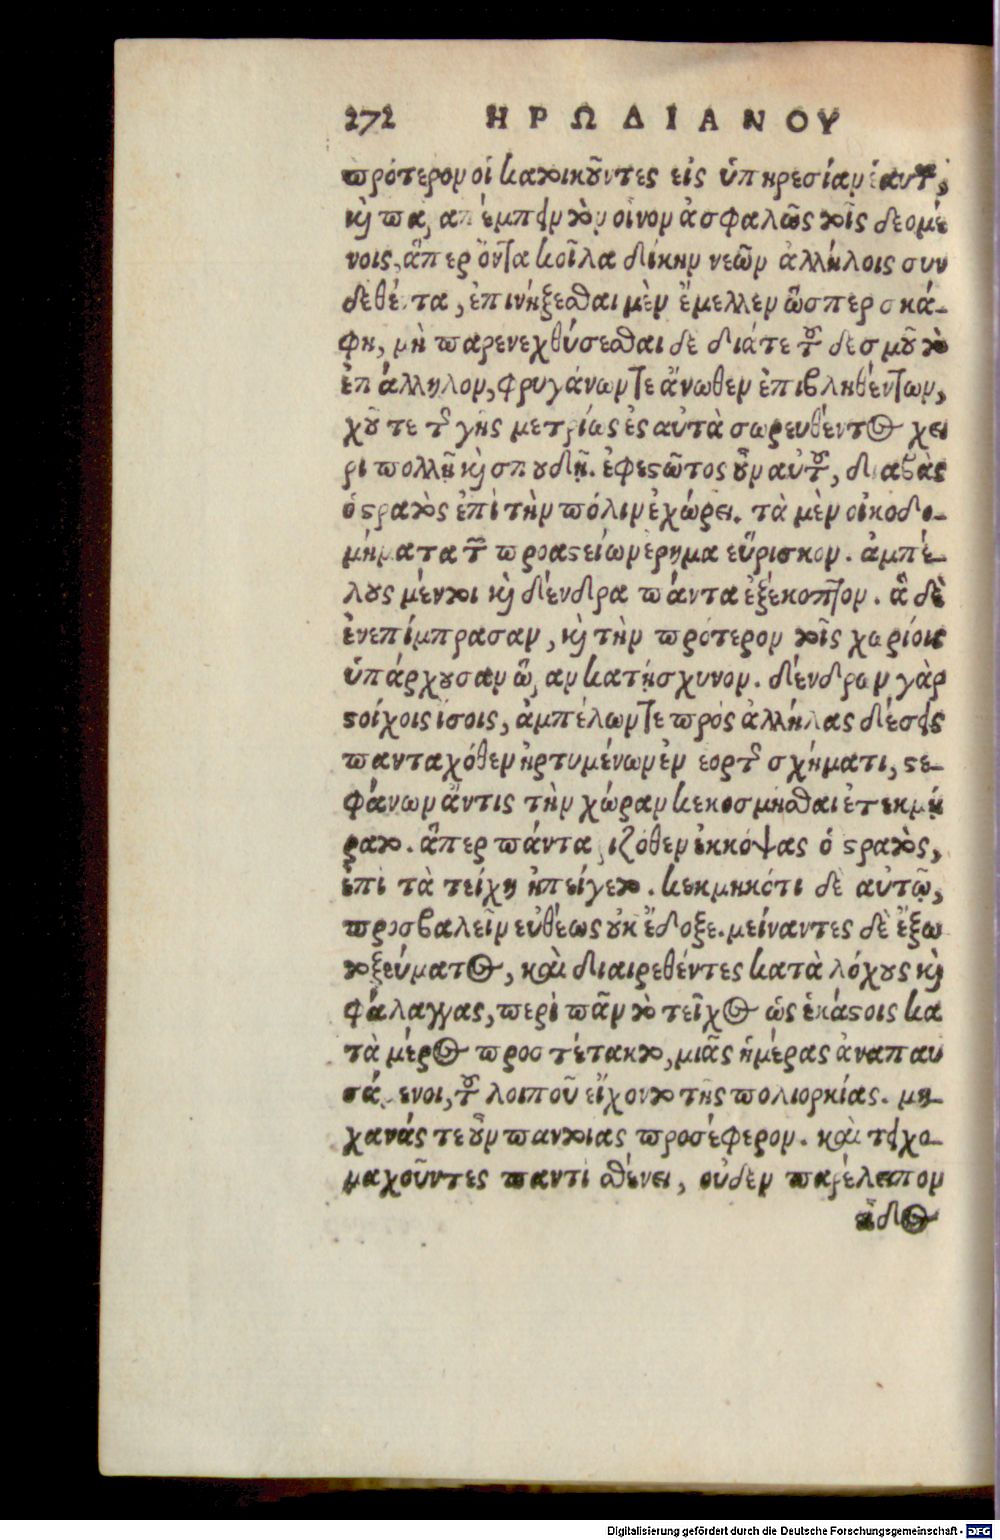 272 ΗΡΩΔΙΑΝΟΥ
πρότερον οἱ κατοικοῦντες εἰς ὑπηρεσίαν ἑαυτῶν,
καὶ παραπέμπειν τὸν οἶνον ἀσφαλῶς τοῖς δεομέ
νοις, ἅπερ ὄντα κοῖλα δίκην νεῶν ἀλλήλοις συν
δεθέντα, ἐπινήξεσθαι μὲν ἔμελλεν ὥσπερ σκά-
φη, μὴ παρενεχθήσεσθαι δὲ διά τε τοῦ δεσμοῦ τὸ
ἐπ' άλληλον, φρυγάνων τε ἄνωθεν ἐπιβληθέντων,
χοῦ τε τῆς γῆς μετρίως ἐς αὐτὰ σωρευθέντος χει
ρὶ πολλῇ καὶ σπουδῇ. ἐφεστῶτος οὖν αὐτοῦ, διαβὰς
ὁ στρατὸς ἐπὶ τὴν πόλιν ἐχώρει. τὰ μὲν οἰκοδο-
μήματα τῶν προαστείων ἔρημα εὕρισκον. ἀμπέ-
λους μέντοι καὶ δένδρα πάντα ἐξέκοπτον. ἃ δὲ
ἐνεπίμπρασαν, καὶ τὴν πρότερον τοῖς χωρίοις
ὑπάρχουσαν ὥραν κατῄσχυνον. δένδρων γὰρ
στοίχοις ἴσοις, ἀμπέλων τε πρὸς ἀλλήλας δέσεις
πανταχόθεν ἠρτυμένων ἐν ἑορτῆς σχήματι, στε-
φάνων ἄν τις τὴν χώραν κεκοσμῆσθαι ἐτεκμή
ρατο. ἅπερ πάντα ῥιζόθεν ἐκκόψας ὁ στρατὸς,
ἐπὶ τὰ τείχη ἠπείγετο. κεκμηκότι δὲ αὐτῷ,
προσβαλεῖν εὐθέως οὐκ ἔδοξε. μείναντες δὲ ἔξω
τοξεύματος, καὶ διαιρεθέντες κατὰ λόχους καὶ
φάλαγγας, περὶ πᾶν τὸ τεῖχος ὡς ἑκάστοις κα
τὰ μέρος προστέτακτο, μιᾶς ἡμέρας ἀναπαυ
σάμενοι, τοῦ λοιποῦ εἴχοντο τῆς πολιορκίας. μη-
χανάς τε οὖν παντοίας προσέφερον. καὶ τειχο-
μαχοῦντες παντὶ σθένει, οὐδὲν παρέλειπον
εἶδος
Digitalisierung gefördert durch die Deutsche Forschungsgemeinschaft - DFG